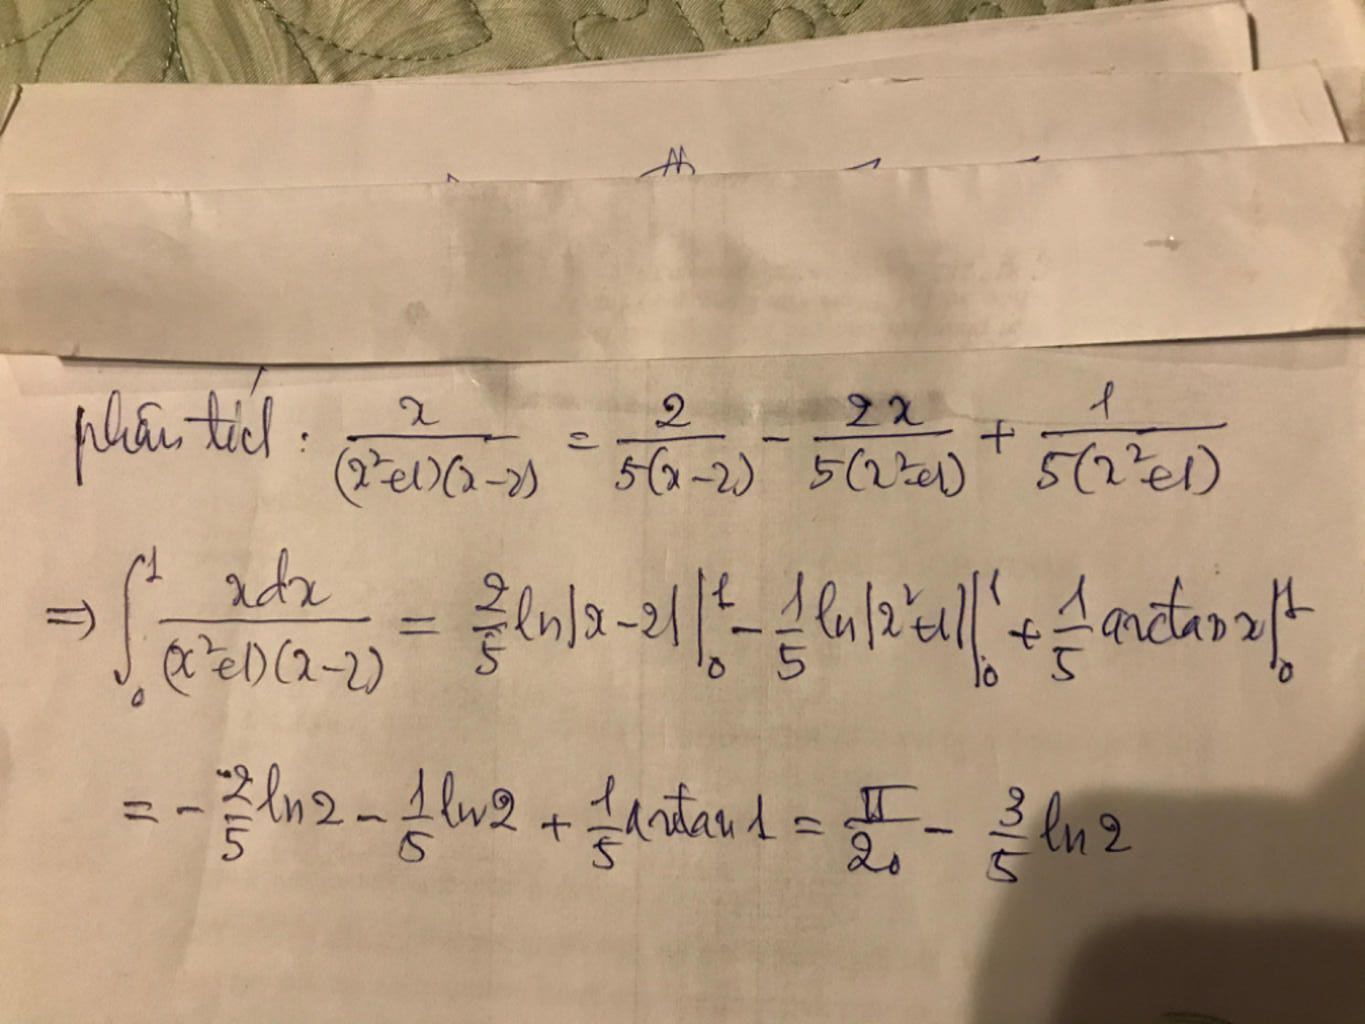 phân tích : x/((x²+1)(x-2)) = 2/(5(x-2)) - 2x/(5(x²+1)) + 1/(5(x²+1))
=> ∫₀¹ xdx/((x²+1)(x-2)) = 2/5 ln|x-2| |₀¹ - 1/5 ln|x²+1| |₀¹ + 1/5 arctan x |₀¹
= - 2/5 ln2 - 1/5 ln2 + 1/5 arctan 1 = π/20 - 3/5 ln2